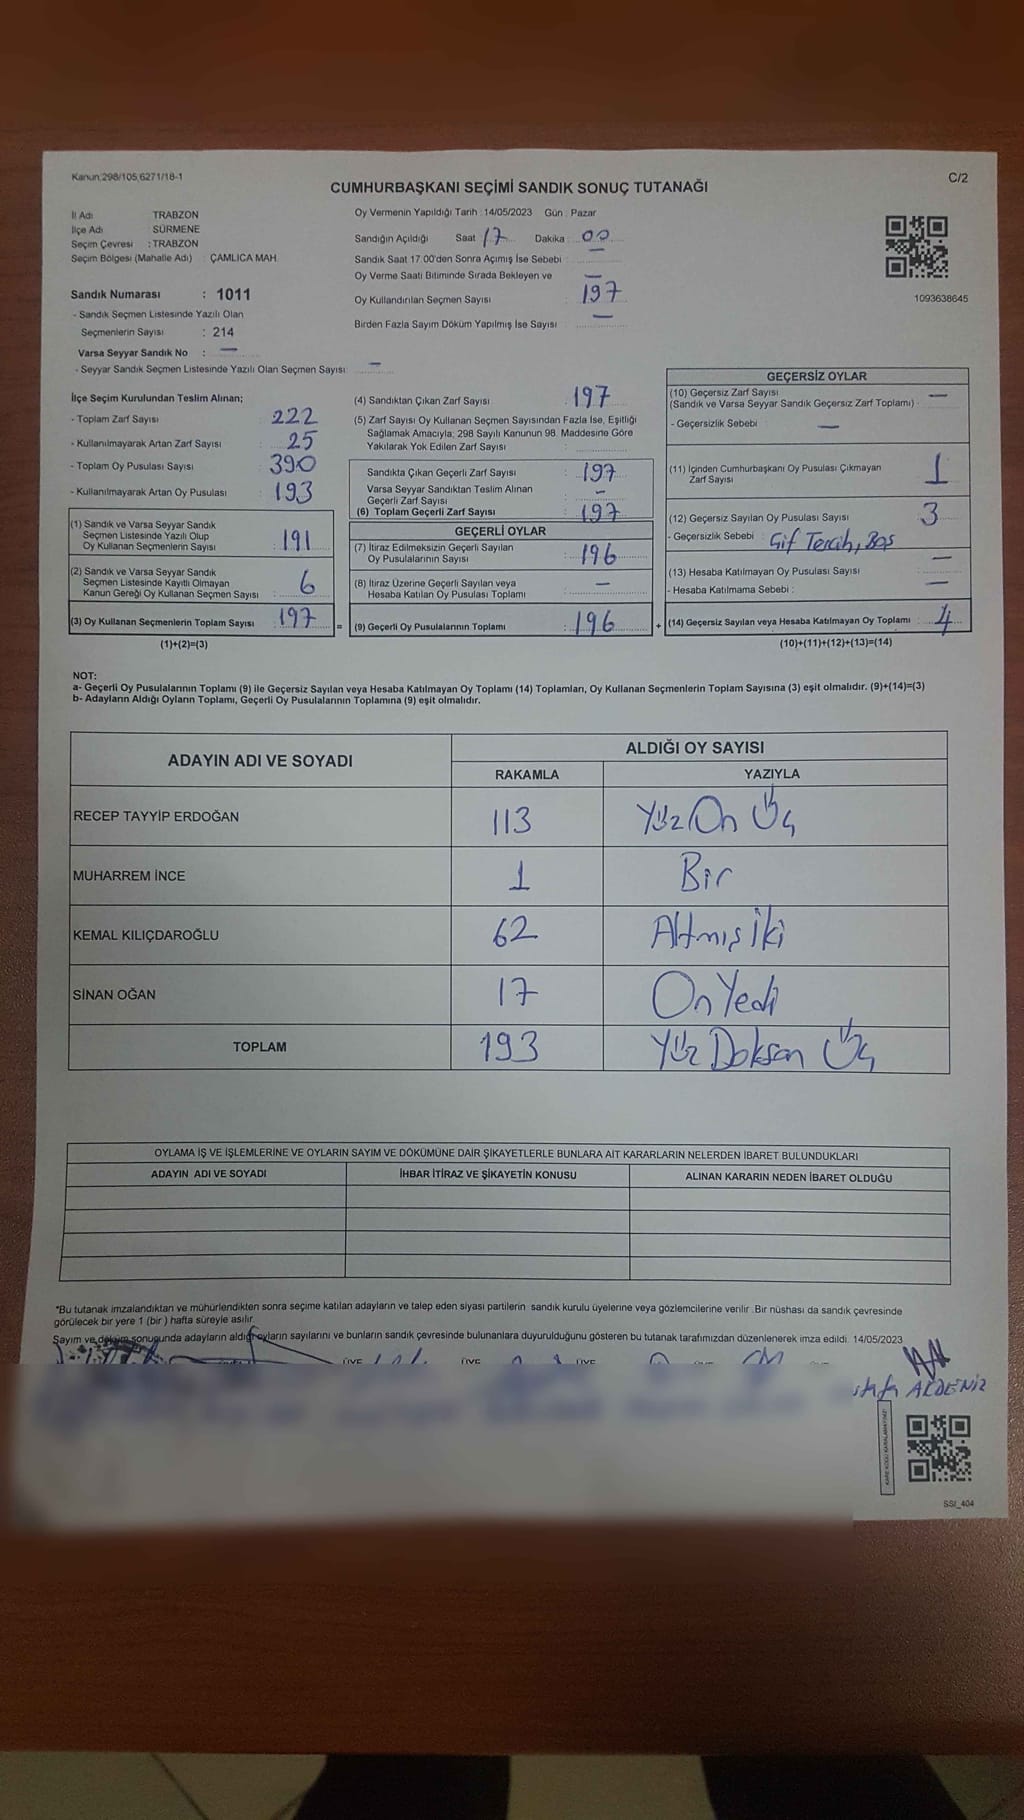 Kanun:298/105,6271/18-1
C/2
CUMHURBAŞKANI SEÇİMİ SANDIK SONUÇ TUTANAĞI
İl Adı TRABZON
İlçe Adı SÜRMENE
Seçim Çevresi : TRABZON
Seçim Bölgesi (Mahalle Adı) : ÇAMLICA MAH.
Sandık Numarası : 1011
- Sandık Seçmen Listesinde Yazılı Olan
Seçmenlerin Sayısı : 214
Varsa Seyyar Sandık No : —
- Seyyar Sandık Seçmen Listesinde Yazılı Olan Seçmen Sayısı: —
Oy Vermenin Yapıldığı Tarih : 14/05/2023 Gün : Pazar
Sandığın Açıldığı Saat 17 Dakika : 00
Sandık Saat 17.00'den Sonra Açımış İse Sebebi : —
Oy Verme Saati Bitiminde Sırada Bekleyen ve —
Oy Kullandırılan Seçmen Sayısı : 197
Birden Fazla Sayım Döküm Yapılmış İse Sayısı : —
1093638645
İlçe Seçim Kurulundan Teslim Alınan;
- Toplam Zarf Sayısı : 222
- Kullanılmayarak Artan Zarf Sayısı : 25
- Toplam Oy Pusulası Sayısı : 390
- Kullanılmayarak Artan Oy Pusulası : 193
(1) Sandık ve Varsa Seyyar Sandık
Seçmen Listesinde Yazılı Olup
Oy Kullanan Seçmenlerin Sayısı : 191
(2) Sandık ve Varsa Seyyar Sandık
Seçmen Listesinde Kayıtlı Olmayan
Kanun Gereği Oy Kullanan Seçmen Sayısı : 6
(3) Oy Kullanan Seçmenlerin Toplam Sayısı : 197
(1)+(2)=(3)
(4) Sandıktan Çıkan Zarf Sayısı : 197
(5) Zarf Sayısı Oy Kullanan Seçmen Sayısından Fazla İse, Eşitliği
Sağlamak Amacıyla; 298 Sayılı Kanunun 98. Maddesine Göre
Yakılarak Yok Edilen Zarf Sayısı :
Sandıkta Çıkan Geçerli Zarf Sayısı : 197
Varsa Seyyar Sandıktan Teslim Alınan
Geçerli Zarf Sayısı : —
(6) Toplam Geçerli Zarf Sayısı : 197
GEÇERLİ OYLAR
(7) İtiraz Edilmeksizin Geçerli Sayılan
Oy Pusulalarının Sayısı : 196
(8) İtiraz Üzerine Geçerli Sayılan veya
Hesaba Katılan Oy Pusulası Toplamı : —
= (9) Geçerli Oy Pusulalarının Toplamı : 196 +
GEÇERSİZ OYLAR
(10) Geçersiz Zarf Sayısı —
(Sandık ve Varsa Seyyar Sandık Geçersiz Zarf Toplamı) :
- Geçersizlik Sebebi : —
(11) İçinden Cumhurbaşkanı Oy Pusulası Çıkmayan
Zarf Sayısı 1
(12) Geçersiz Sayılan Oy Pusulası Sayısı : 3
- Geçersizlik Sebebi : Çif Tercih, Boş
(13) Hesaba Katılmayan Oy Pusulası Sayısı : —
- Hesaba Katılmama Sebebi : —
(14) Geçersiz Sayılan veya Hesaba Katılmayan Oy Toplamı : 4
(10)+(11)+(12)+(13)=(14)
NOT:
a- Geçerli Oy Pusulalarının Toplamı (9) ile Geçersiz Sayılan veya Hesaba Katılmayan Oy Toplamı (14) Toplamları, Oy Kullanan Seçmenlerin Toplam Sayısına (3) eşit olmalıdır. (9)+(14)=(3)
b- Adayların Aldığı Oyların Toplamı, Geçerli Oy Pusulalarının Toplamına (9) eşit olmalıdır.
ADAYIN ADI VE SOYADI ALDIĞI OY SAYISI
RAKAMLA YAZIYLA
RECEP TAYYİP ERDOĞAN 113 Yüz On Üç
MUHARREM İNCE 1 Bir
KEMAL KILIÇDAROĞLU 62 Altmış İki
SİNAN OĞAN 17 On Yedi
TOPLAM 193 Yüz Doksan Üç
OYLAMA İŞ VE İŞLEMLERİNE VE OYLARIN SAYIM VE DÖKÜMÜNE DAİR ŞİKAYETLERLE BUNLARA AİT KARARLARIN NELERDEN İBARET BULUNDUKLARI
ADAYIN ADI VE SOYADI İHBAR İTİRAZ VE ŞİKAYETİN KONUSU ALINAN KARARIN NEDEN İBARET OLDUĞU
*Bu tutanak imzalandıktan ve mühürlendikten sonra seçime katılan adayların ve talep eden siyasi partilerin sandık kurulu üyelerine veya gözlemcilerine verilir. Bir nüshası da sandık çevresinde
görülecek bir yere 1 (bir) hafta süreyle asılır.
Sayım ve döküm sonugunda adayların aldığı oyların sayılarını ve bunların sandık çevresinde bulunanlara duyurulduğunu gösteren bu tutanak tarafımızdan düzenlenerek imza edildi. 14/05/2023
ÜYE ÜYE ÜYE
AKDENİZ
SSI_404